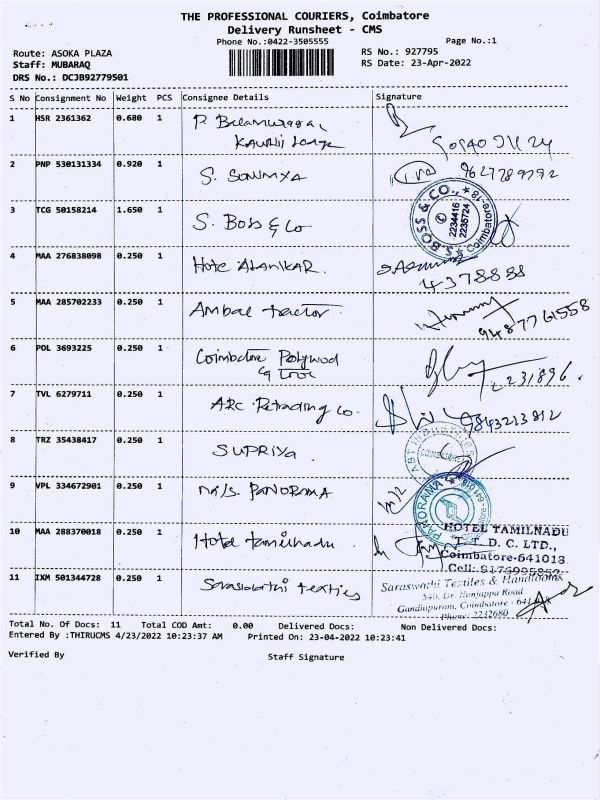 THE PROFESSIONAL COURIERS, Coimbatore
Delivery Runsheet - CMS
Phone No.:0422-3505555
Page No.:1
Route: ASOKA PLAZA
RS No.: 927795
Staff: MUBARAQ
RS Date: 23-Apr-2022
DRS No.: DCJB92779501
S No Consignment No Weight PCS Consignee Details Signature
1 HSR 2361362 0.680 1 P. Balamurugan
2 PNP 530131334 0.920 1 S. SOWMYA 9627789792
3 TCG 50158214 1.650 1 S. Boss & Co
S. BOSS & CO., Coimbatore-18
2234416
2235724
4 MAA 276838098 0.250 1 Hotel ALANKAR. 4378888
5 MAA 285702233 0.250 1 Ambal tractor 9487761558
6 POL 3693225 0.250 1 Coimbatore Polywod
& Tool 2231896.
7 TVL 6279711 0.250 1 ARC Retrading Co. 9843213812
8 TRZ 35438417 0.250 1 SUPRIYA.
9 VPL 334672901 0.250 1 M/S. PANORAMA
PANORAMA
10 MAA 288370018 0.250 1 Hotel tamilnadu
HOTEL TAMILNADU
T. T. D. C. LTD.,
Coimbatore-641018
Cell:
11 IXM 501344728 0.250 1 Saraswathi textiles
Saraswathi Textiles & Handlooms
540, Dr. Nanjappa Road
Gandhipuram, Coimbatore - 641
Phone: 2232680
Total No. Of Docs: 11 Total COD Amt: 0.00 Delivered Docs: Non Delivered Docs:
Entered By :THIRUCMS 4/23/2022 10:23:37 AM Printed On: 23-04-2022 10:23:41
Verified By Staff Signature